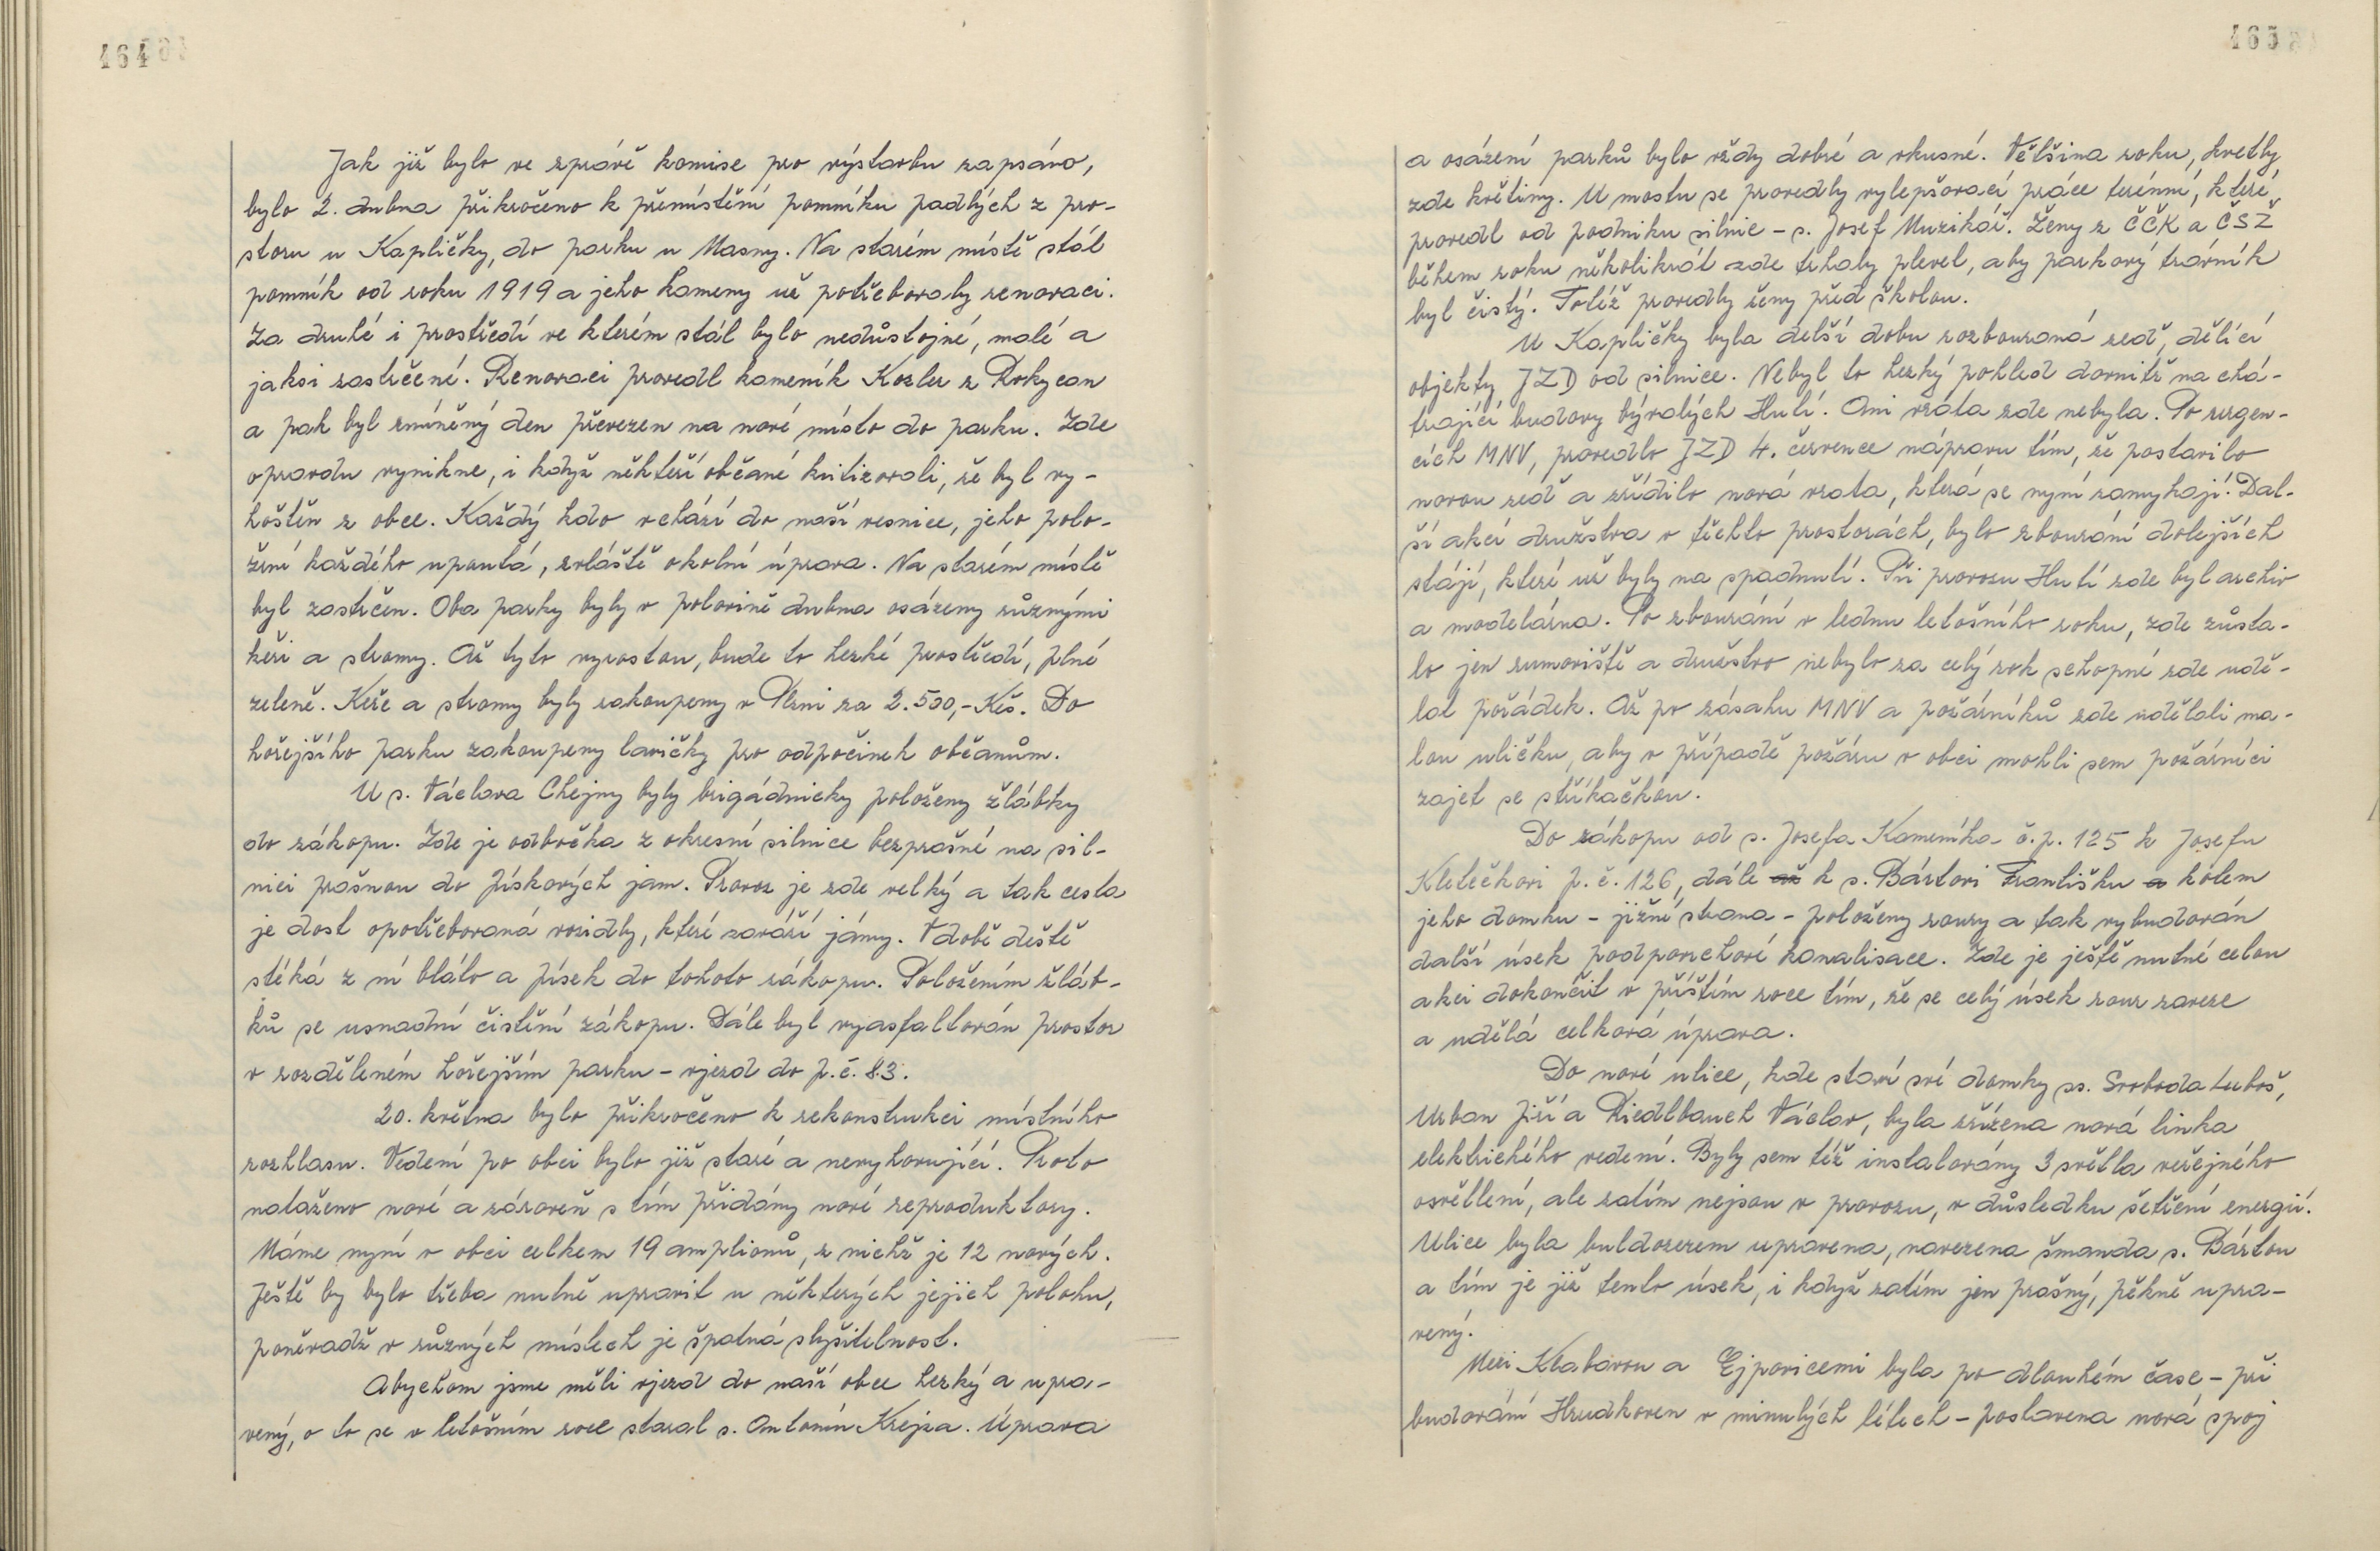 464
Jak již bylo ve zprávě komise pro výstavbu zapsáno,
bylo 2. dubna přikročeno k přemístění pomníku padlých z pro-
storu u Kapličky, do parku u Masny. Na starém místě stál
pomník od roku 1919 a jeho kameny už potřebovaly renovaci.
Za druhé i prostředí ve kterém stál bylo nedůstojné, malé a
jaksi zastrčené. Renovaci provedl kameník Kozler z Rokycan
a pak byl zmíněný den převezen na nové místo do parku. Zde
opravdu vynikne, i když někteří občané kritizovali, že byl vy-
hoštěn z obce. Každý kdo vchází do naší vesnice, jeho polo-
žení každého upoutá, zvláště okolní úprava. Na starém místě
byl zastrčen. Oba parky byly v polovině dubna osázeny různými
keři a stromy. Až tyto vyrostou, bude to hezké prostředí, plné
zeleně. Keře a stromy byly zakoupeny v Plzni za 2.500,- Kčs. Do
hořejšího parku zakoupeny lavičky pro odpočinek občanům.
U s. Václava Chejny byly brigádnicky položeny žlábky
do zákopu. Zde je odbočka z okresní silnice bezprašné na sil-
nici prašnou do pískových jam. Provoz je zde velký a tak cesta
je dost opotřebovaná vozidly, které zaváží jámy. V době deště
stéká z ní bláto a písek do tohoto zákopu. Položením žláb-
ků se usnadní čistění zákopu. Dále byl vyasfaltován prostor
v rozděleném hořejším parku - vjezd do p.č. 83.
20. května bylo přikročeno k rekonstrukci místního
rozhlasu. Vedení po obci bylo již staré a nevyhovující. Proto
nataženo nové a zároveň s tím přidány nové reproduktory.
Máme nyní v obci celkem 19 amplionů, z nichž je 12 nových.
Ještě by bylo třeba nutně upravit u některých jejich polohu,
poněvadž v různých místech je špatná slyšitelnost.
Abychom jsme měli vjezd do naší obce hezký a upra-
vený, o to se v letošním roce staral s. Antonín Krejza. Úprava
465
a osázení parků bylo vždy dobré a vkusné. Většina roku, kvetly
zde květiny. U mostu se provedly vylepšovací práce terénní, které
provedl od podniku silnic - s. Josef Muzikář. Ženy z ČČK a ČSŽ
během roku několikrát zde trhaly plevel, aby parkový trávník
byl čistý. Totéž provedly ženy před školou.
U Kapličky byla delší dobu rozbouraná zeď, dělící
objekty JZD od silnice. Nebyl to hezký pohled dovnitř na chá-
trající budovy bývalých Hutí. Ani vrata zde nebyla. Po urgen-
cích MNV, provedlo JZD 4. července nápravu tím, že postavilo
novou zeď a zřídilo nová vrata, která se nyní zamykají. Dal-
ší akcí družstva v těchto prostorách, bylo zbourání dolejších
stájí, které už byly na spadnutí. Při provozu Hutí zde byl archiv
a modelárna. Po zbourání v lednu letošního roku, zde zůsta-
lo jen rumoviště a družstvo nebylo za celý rok schopné zde udě-
lat pořádek. Až po zásahu MNV a požárníků zde udělali ma-
lou uličku, aby v případě požáru v obci mohli sem požárníci
zajet se stříkačkou.
Do zákopu od s. Josefa Kameníka č.p. 125 k Josefu
Kletečkovi p.č. 126, dále až k s. Bártovi Františku a kolem
jeho domku - jižní strana - položeny roury a tak vybudován
další úsek podpovrchové kanalisace. Zde je ještě nutné celou
akci dokončit v příštím roce tím, že se celý úsek rour zaveze
a udělá celková úprava.
Do nové ulice, kde staví své domky ss. Svoboda Luboš,
Urban Jiří a Riedlbauch Václav, byla zřízena nová linka
elektrického vedení. Byly sem též instalovány 3 světla veřejného
osvětlení, ale zatím nejsou v provozu, v důsledku šetření energií.
Ulice byla buldozerem upravena, navezena šmanda s. Bártou
a tím je již tento úsek, i když zatím jen prašný, pěkně upra-
vený.
Mezi Klabavou a Ejpovicemi byla po dlouhém čase - při
budování Hrudkoven v minulých létech - postavena nová spoj